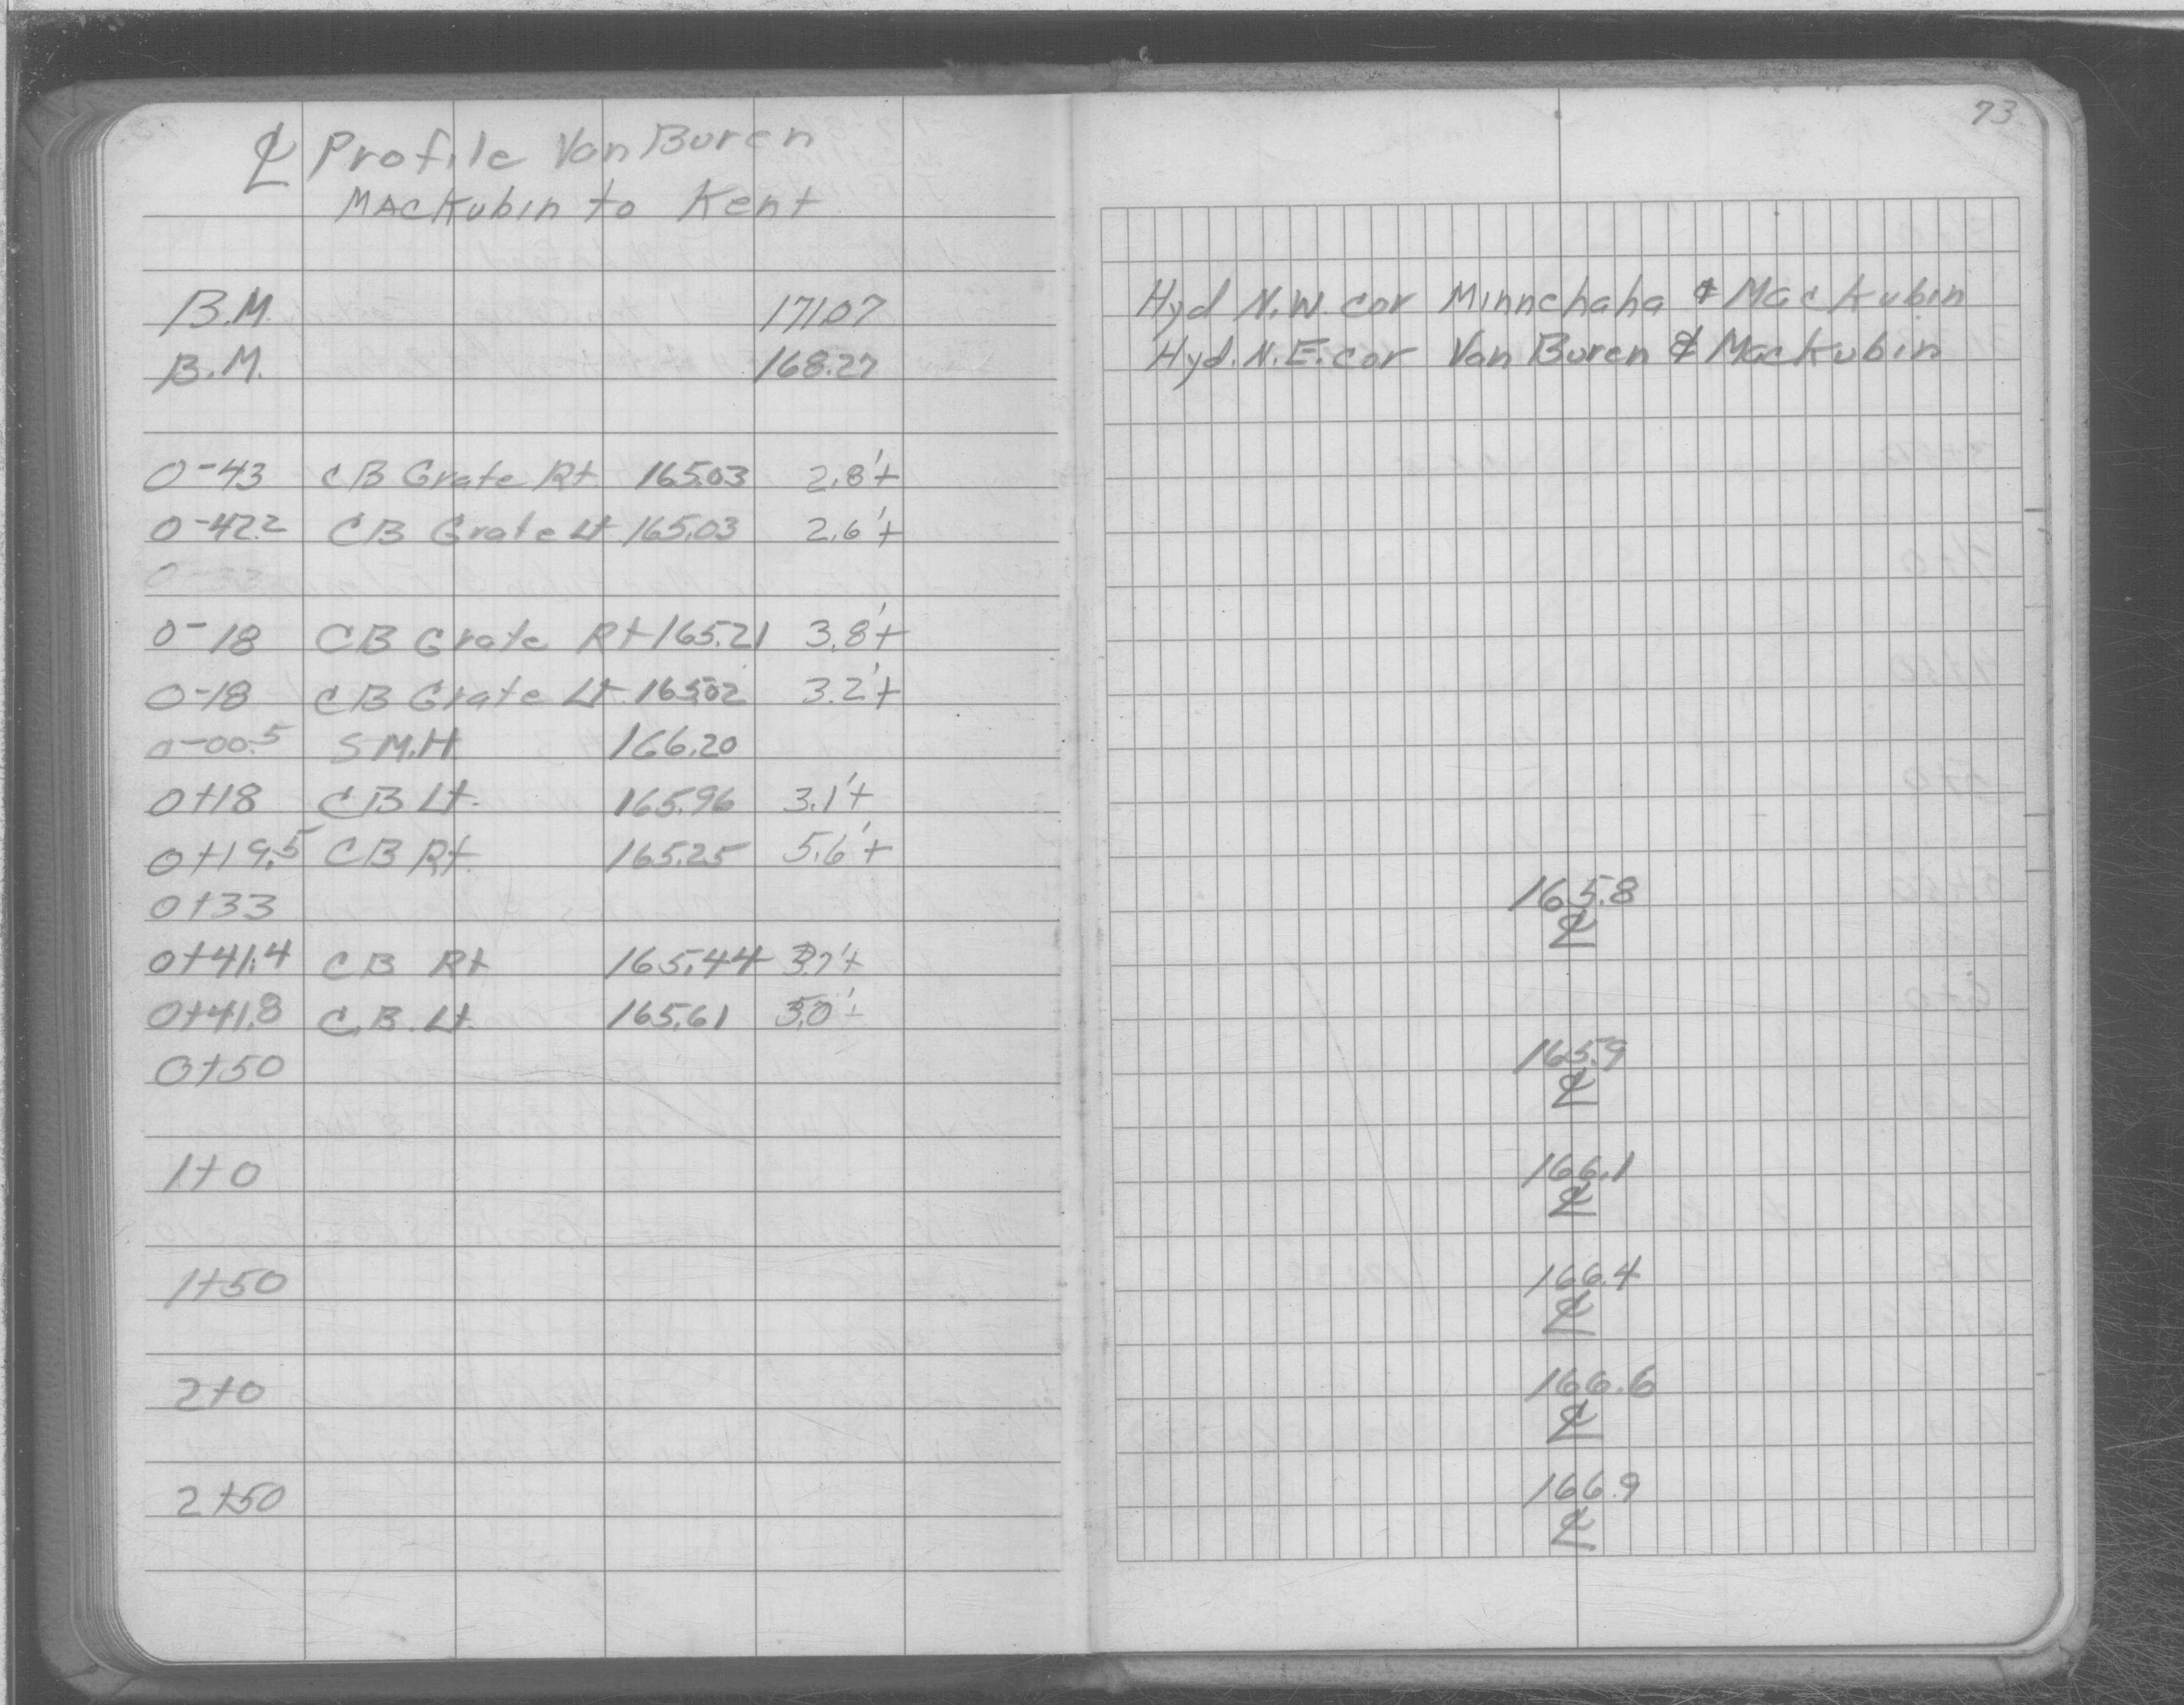 ℄ Profile Van Buren
Mackubin to Kent
B.M. 171.07
B.M. 168.27
0-43 CB Grate Rt. 165.03 2.8'±
0-42.2 CB Grate Lt 165.03 2.6'±
0-33
0-18 CB Grate Rt 165.21 3.8'±
0-18 CB Grate Lt. 165.02 3.2'±
0-00.5 S M.H. 166.20
0+18 CB Lt. 165.96 3.1'±
0+19.5 CB Rt. 165.25 5.6'±
0+33
0+41.4 CB Rt 165.44 3.7'±
0+41.8 C.B. Lt. 165.61 3.0'±
0+50
1+0
1+50
2+0
2+50
73
Hyd N.W. cor Minnehaha & Mackubin
Hyd. N.E. cor Van Buren & Mackubin
165.8
℄
165.9
℄
166.1
℄
166.4
℄
166.6
℄
166.9
℄